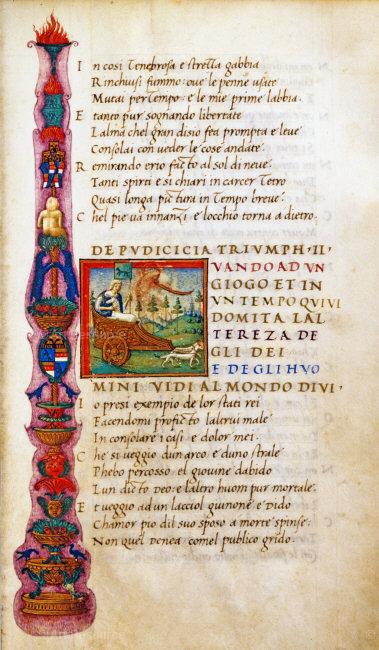 I n cosi Tenebrosa e strella gabbia
R inchiusi fummo: oue le penne usate
M utai per Tempo: e le mie prime labbia.
E tanto pur sognando libertate
L alma chel gran disio fea prompta e leue
C onsolai con ueder le cose andate.
R emirando ero facto al sol di neue:
T anti spirti e si chiari in carcer Tetro
Q uasi longa pictura in Tempo breue:
C hel pie va innanzi e locchio torna a dietro.
DE PVDICICIA TRIVMPH · II ·
VANDO AD VN
GIOGO ET IN
VN TEMPO QVIVI
DOMITA LAL
TEREZA DE
GLI DEI
E DEGLI HVO
MINI VIDI AL MONDO DIVI ·
I o presi exempio de lor stati rei
F acendomi proficto lalerui male
I n consolare i casi e dolor mei.
C he si ueggio dun arco e duno strale
P hebo percosso, el giouine dabido
L un dicto deo: e laltro huom pur mortale.
E t ueggio ad un lacciol Giunone e Dido
C hamor pio dil suo sposo a morte spinse:
N on quel denea: comel publico grido.